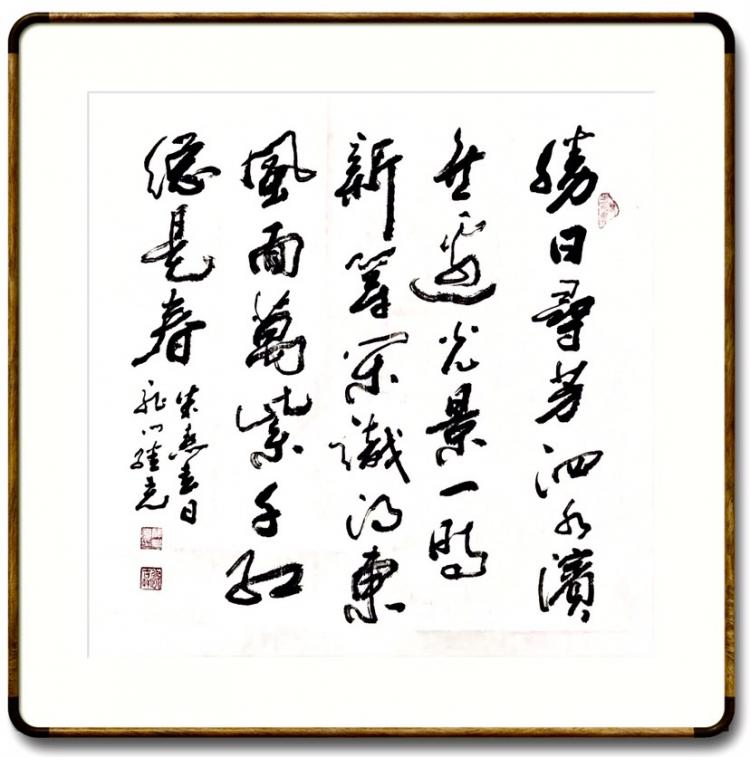 勝日尋芳泗水濱
無邊光景一時
新等閑識得東
風面萬紫千紅
總是春
朱熹春日
龍門